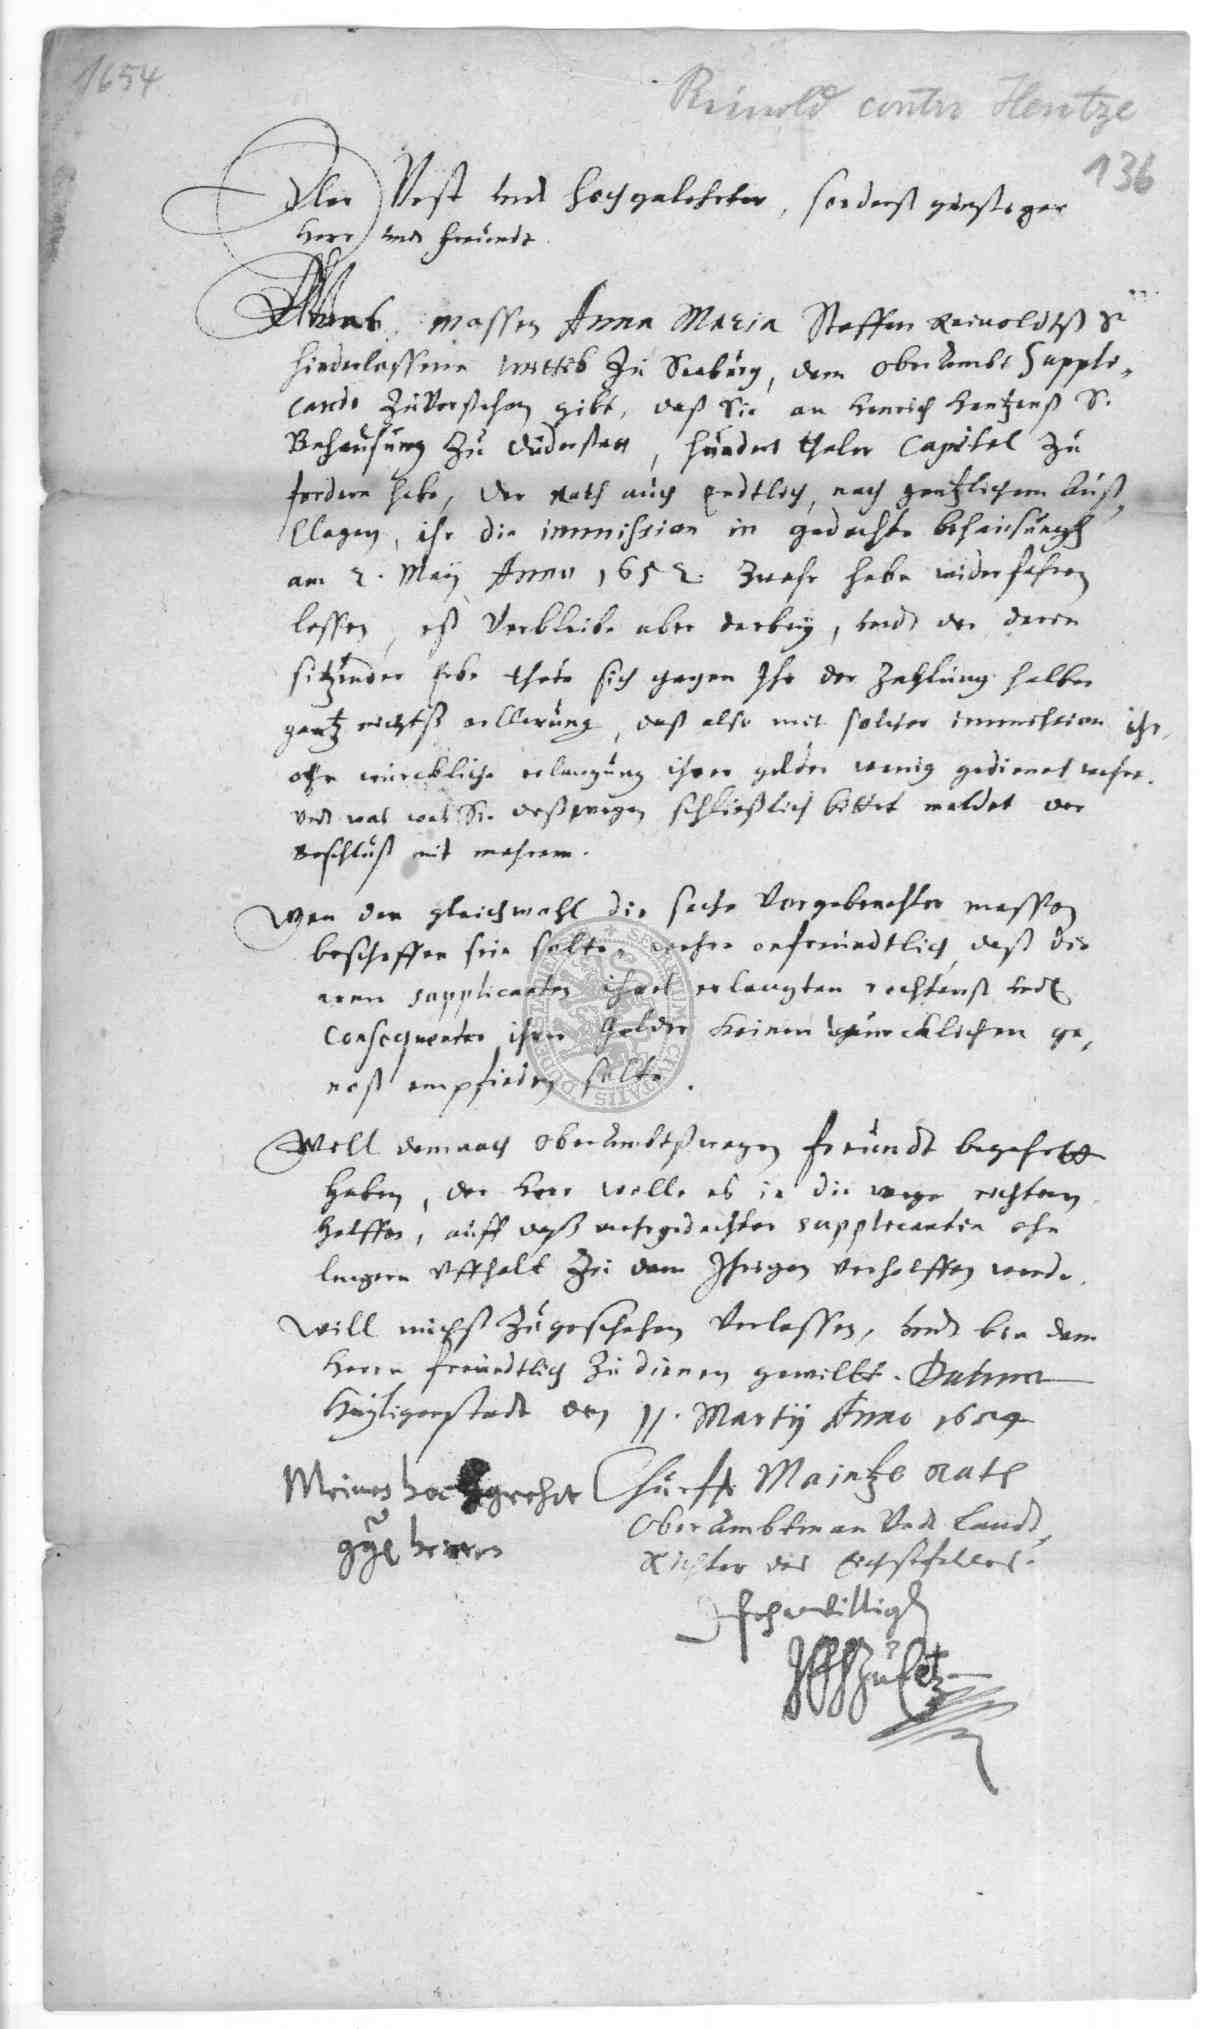 1654
Reinold contra Hentze
136
Edler Vest und hochgelehrter, sonderß günstiger
Herr und freündt.
Waß massen Anna Maria Steffen Reinoldtß S.
hinderlassene wittib zu Seeburg, dem OberAmbt Suppli„
cando zuVerstehen gibt, daß Sie an Henrich Hentzenß S.
Behausung zu Duderstatt, hundert thaler Capital zu
fordern habe, der Rath auch endtlich, nach gentzlichem Auß„
klagen, ihr die immission in gedachte behausung
am 2. Maij Anno 1652. zwahr habe widerfahren
lassen, eß Verbleibe aber darbey, undt der darin
sitzender Erbe thete sich gegen Ihr der Zahlung halber
gantz nichtß erklerung, daß also mit solcher immission ihr,
ohn würckliche erlangung ihrer gelder wenig gedienet wehre.
Undt was Sie deßwegen schließlich bittet meldet der
Beschluß mit mehrem.
Wan den gleichwohl die sache Vorgebrachter massen
beschaffen sein solte, wehre onfreundtlich, daß die
arme supplicantin ihreß erlangten rechtenß undt
Consequenter ihrer Gelder keinen würcklichen ge„
noß empfinden solte.
Will demnach OberAmbtßwegen freündt begehrtt
haben, der Herr wolle es in die wege richten
helffen, auff daß mehrgedachter supplicantin ohn
lengern Uffhalt zu dem Ihrigen verholffen werde.
Will michß zugeschehen Verlassen, undt bin dem
Herrn freundtlich zu dienen gewilt. Datum
Heyligenstadt den 11. Martij Anno 1654
Meines hochgeehrt
Churft Maintze Rath
OberAmbtman Undt Landt„
Richter des Eichsfeldes.
herren